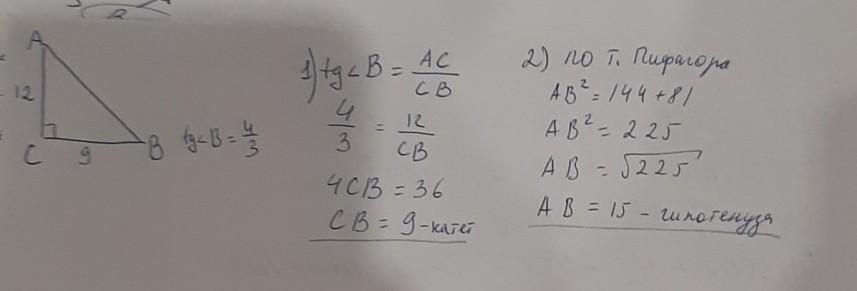 A
12
C
9
B
tg<B = 4/3
1) tg<B = AC/CB
4/3 = 12/CB
4CB = 36
CB = 9 - катет
2) по т. Пифагора
AB² = 144 + 81
AB² = 225
AB = √225
AB = 15 - гипотенуза